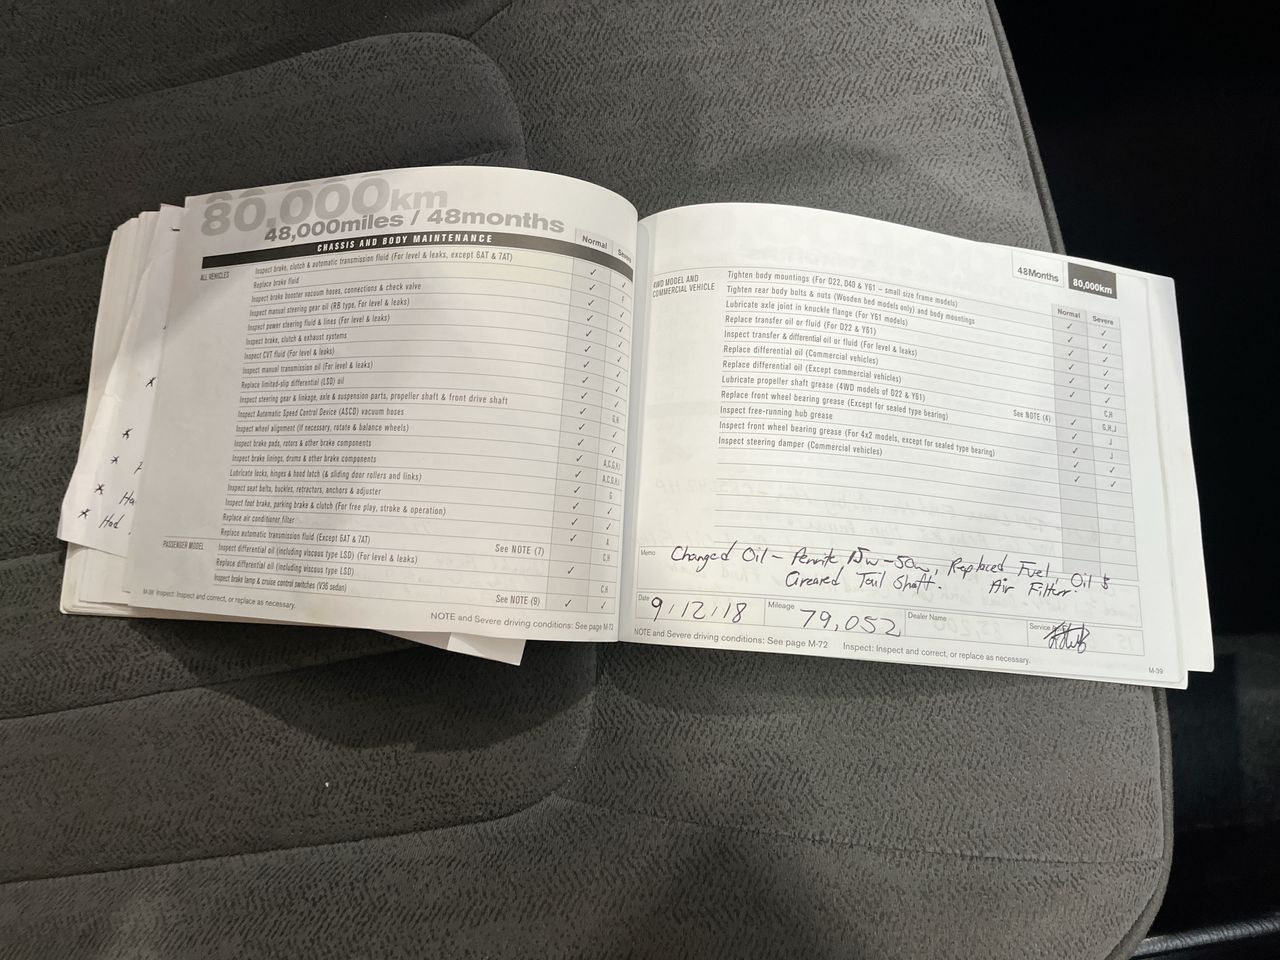 80,000km
48,000miles / 48months
CHASSIS AND BODY MAINTENANCE
Normal
Severe
ALL VEHICLES
Inspect brake, clutch & automatic transmission fluid (For level & leaks, except 6AT & 7AT)
Replace brake fluid
Inspect brake booster vacuum hoses, connections & check valve
Inspect manual steering gear oil (RB type, For level & leaks)
Inspect power steering fluid & lines (For level & leaks)
Inspect brake, clutch & exhaust systems
Inspect CVT fluid (For level & leaks)
Inspect manual transmission oil (For level & leaks)
Replace limited-slip differential (LSD) oil
Inspect steering gear & linkage, axle & suspension parts, propeller shaft & front drive shaft
Inspect Automatic Speed Control Device (ASCD) vacuum hoses
Inspect wheel alignment (If necessary, rotate & balance wheels)
Inspect brake pads, rotors & other brake components
Inspect brake linings, drums & other brake components
Lubricate locks, hinges & hood latch (& sliding door rollers and links)
Inspect seat belts, buckles, retractors, anchors & adjuster
Inspect foot brake, parking brake & clutch (For free play, stroke & operation)
Replace air conditioner filter
Replace automatic transmission fluid (Except 6AT & 7AT) See NOTE (7)
PASSENGER MODEL
Inspect differential oil (including viscous type LSD) (For level & leaks)
Replace differential oil (including viscous type LSD)
Inspect brake lamp & cruise control switches (V36 sedan) See NOTE (9)
M-38 Inspect: Inspect and correct, or replace as necessary.
NOTE and Severe driving conditions: See page M-72
48Months
80,000km
Normal
Severe
4WD MODEL AND
COMMERCIAL VEHICLE
Tighten body mountings (For D22, D40 & Y61 – small size frame models)
Tighten rear body bolts & nuts (Wooden bed models only) and body mountings
Lubricate axle joint in knuckle flange (For Y61 models)
Replace transfer oil or fluid (For D22 & Y61)
Inspect transfer & differential oil or fluid (For level & leaks)
Replace differential oil (Commercial vehicles)
Replace differential oil (Except commercial vehicles)
Lubricate propeller shaft grease (4WD models of D22 & Y61)
Replace front wheel bearing grease (Except for sealed type bearing) See NOTE (4)
Inspect free-running hub grease
Inspect front wheel bearing grease (For 4x2 models, except for sealed type bearing)
Inspect steering damper (Commercial vehicles)
Memo
Changed Oil – Penrite 15w-50w, Replaced Fuel, Oil &
Greared Tail Shaft. Air Filter.
Date 9/12/18 Mileage 79,052 Dealer Name
NOTE and Severe driving conditions: See page M-72 Inspect: Inspect and correct, or replace as necessary.
M-39
* Ha
* Had